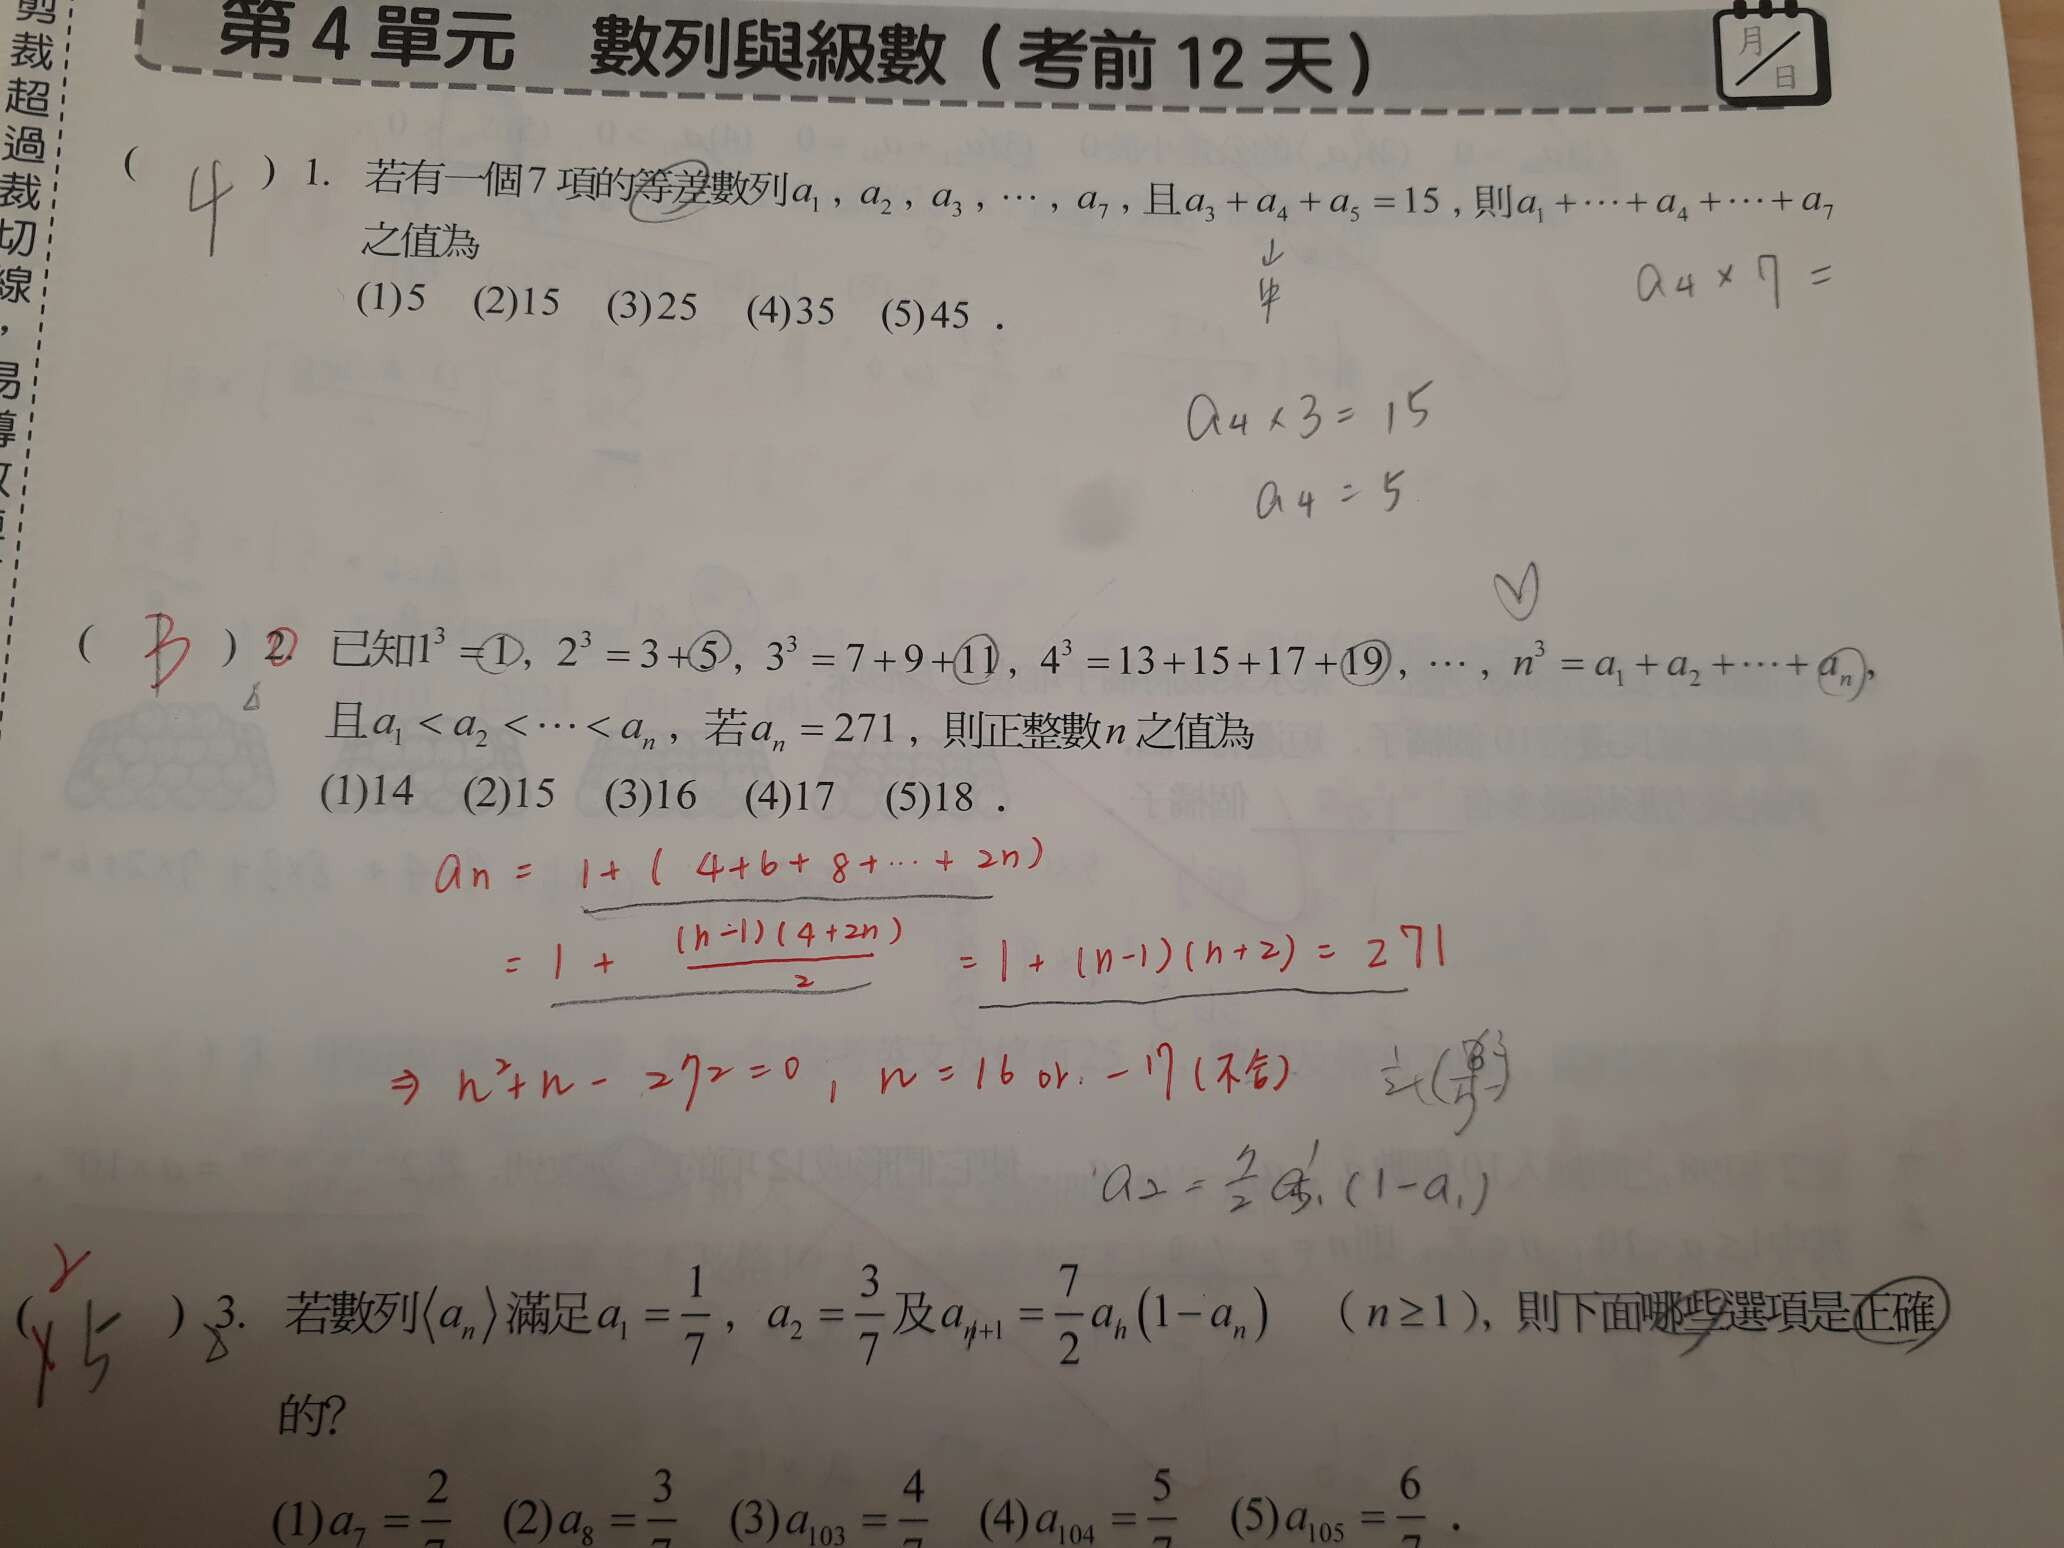 第4單元 數列與級數(考前12天)
月/日
剪裁超過裁切線,易導
( 4 ) 1. 若有一個7項的等差數列a₁, a₂, a₃, ⋯, a₇, 且a₃+a₄+a₅=15, 則a₁+⋯+a₄+⋯+a₇
之值為
↓
中
a₄×7=
(1)5 (2)15 (3)25 (4)35 (5)45 .
a₄×3=15
a₄=5
( B ) 2. 已知1³=1, 2³=3+5, 3³=7+9+11, 4³=13+15+17+19, ⋯, n³=a₁+a₂+⋯+aₙ,
且a₁<a₂<⋯<aₙ, 若aₙ=271, 則正整數n之值為
(1)14 (2)15 (3)16 (4)17 (5)18 .
an = 1+( 4+6+8+⋯+2n)
= 1 + (n-1)(4+2n)/2 = 1+(n-1)(n+2)=271
⇒ n²+n-272=0, n=16 or. -17(不合)
a₂ = 7/2 a₁ (1-a₁)
( 5 ) 3. 若數列⟨aₙ⟩滿足a₁=1/7, a₂=3/7及aₙ₊₁=7/2 aₙ(1-aₙ) (n≥1), 則下面哪些選項是正確
的?
(1)a₇=2/7 (2)a₈=3/7 (3)a₁₀₃=4/7 (4)a₁₀₄=5/7 (5)a₁₀₅=6/7 .